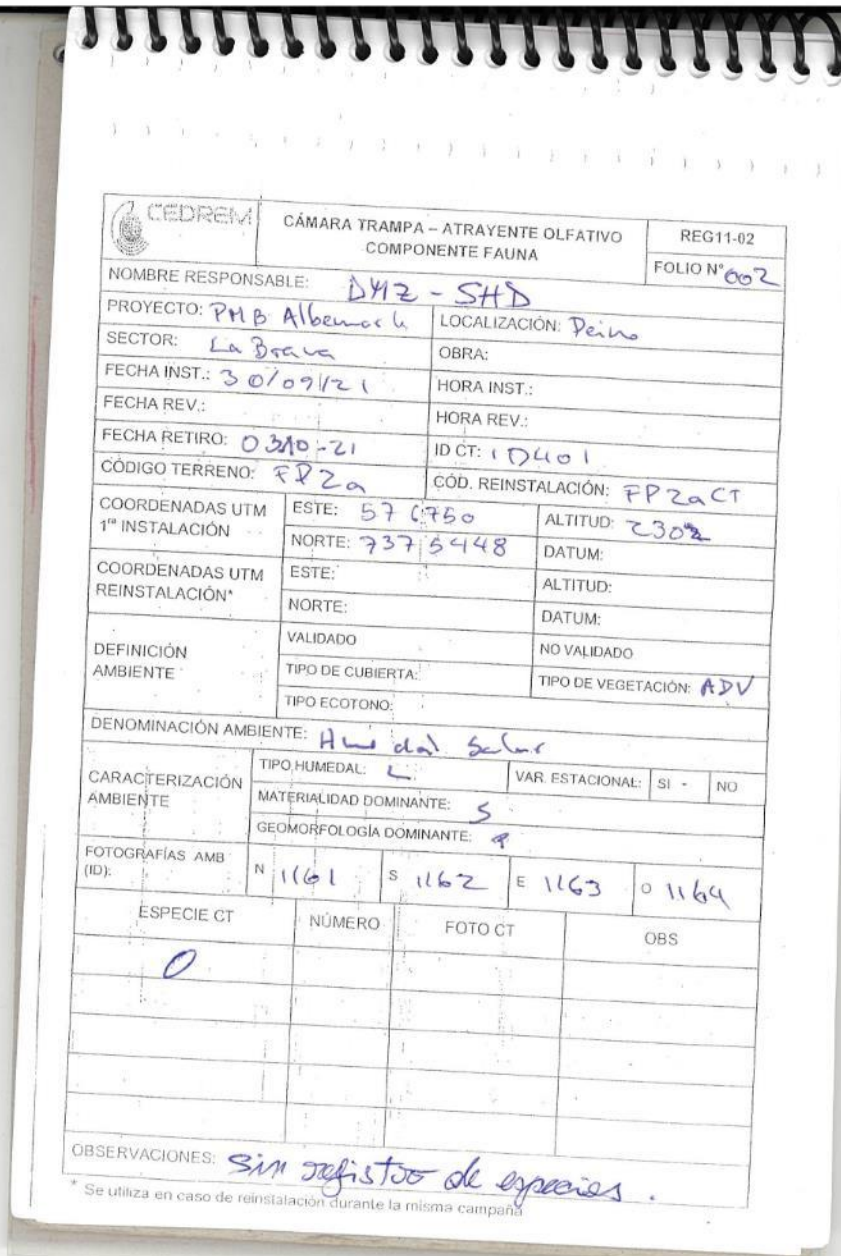 CEDREM
CÁMARA TRAMPA – ATRAYENTE OLFATIVO
COMPONENTE FAUNA
REG11-02
FOLIO N° 002
NOMBRE RESPONSABLE: DMZ - SHD
PROYECTO: PMB Albemarle
LOCALIZACIÓN: Peine
SECTOR: La Brava
OBRA:
FECHA INST.: 30/09/21
HORA INST.:
FECHA REV.:
HORA REV.:
FECHA RETIRO: 03/10-21
ID CT: ID401
CÓDIGO TERRENO: FP2a
CÓD. REINSTALACIÓN: FP2aCT
COORDENADAS UTM
1ra INSTALACIÓN
ESTE: 576750
ALTITUD: 2302
NORTE: 7375448
DATUM:
COORDENADAS UTM
REINSTALACIÓN*
ESTE:
ALTITUD:
NORTE:
DATUM:
DEFINICIÓN
AMBIENTE
VALIDADO
NO VALIDADO
TIPO DE CUBIERTA:
TIPO DE VEGETACIÓN: ADV
TIPO ECOTONO:
DENOMINACIÓN AMBIENTE: Humedal Salar
CARACTERIZACIÓN
AMBIENTE
TIPO HUMEDAL: L
VAR. ESTACIONAL: SI - NO
MATERIALIDAD DOMINANTE: S
GEOMORFOLOGÍA DOMINANTE:
FOTOGRAFÍAS AMB
(ID):
N 1161
S 1162
E 1163
O 1164
ESPECIE CT
NÚMERO
FOTO CT
OBS
0
OBSERVACIONES: Sin registro de especies.
* Se utiliza en caso de reinstalación durante la misma campaña